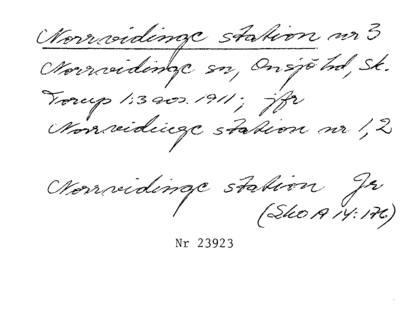 Norrvidinge station nr 3
Norrvidinge sn, Onsjö hd, Sk.
Torup 1:3 avs. 1911; jfr
Norrvidinge station nr 1, 2
Norrvidinge station Jr
(SkO A 14:176)
Nr 23923